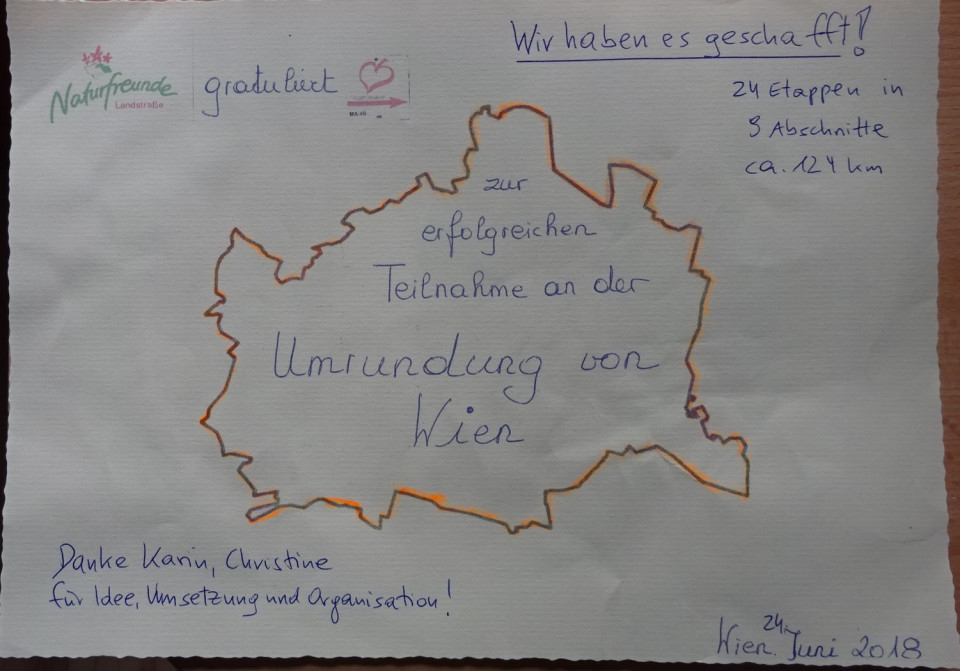 Wir haben es geschafft!
Naturfreunde
Landstraße
gratuliert
24 Etappen in
9 Abschnitte
ca. 124 km
zur
erfolgreichen
Teilnahme an der
Umrundung von
Wien
Danke Karin, Christine
für Idee, Umsetzung und Organisation!
Wien 24. Juni 2018